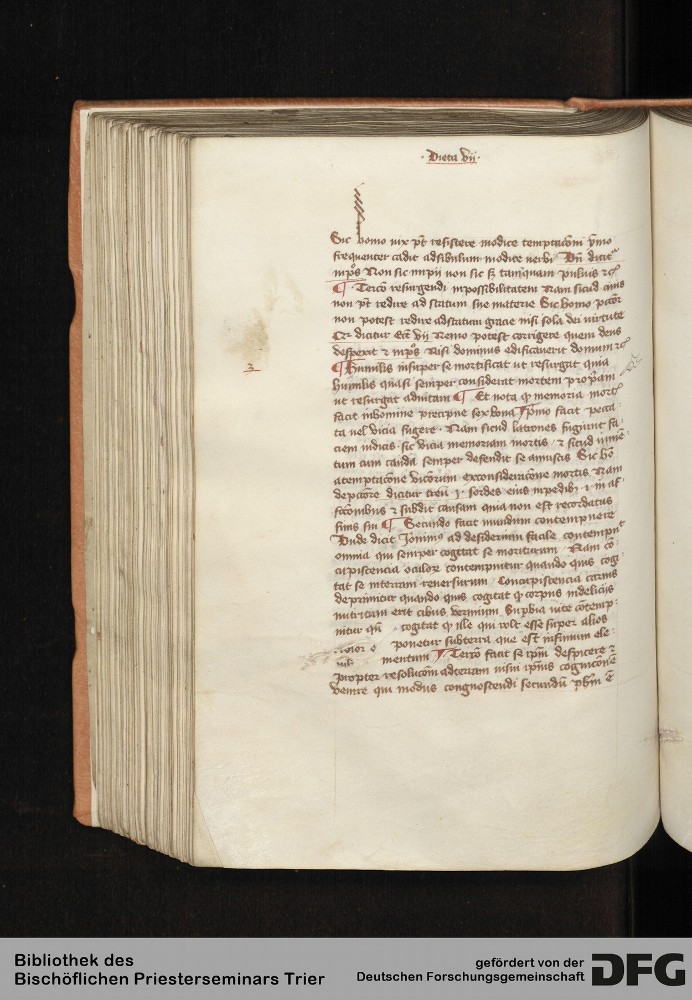 · Dieta vij ·
Sic homo uix pt resistere modice temptacōni ymo
frequenter cadit ad sibilum modice uerbi Vn̄ dicit
mpōs Non sic impii non sic sꝫ tamquam puluis ⁊cͣ
¶ · Tercō resurgendi impossibilitatem Nam sicud cinis
non pt redire ad statum sue materie Sic homo pctōr
non potest redire ad statum gracie nisi sola dei uirtute
dicitur Ecc vij Nemo potest corrigere quem deus
despexit ⁊ mpōs Nisi dominus edificauerit domum ⁊cͣ
3
¶ Humilis insuper se mortificat ut resurgat quia
humilis quasi semper considerat mortem propriam
ut resurgat ad uitam ¶ Et nota ꝙ memoria mortis
facit in homine precipue sex bona ¶ pmo facit pecca
ta uel vicia fugere · Nam sicud latrones fugiunt fa
ciem iudicis sic vicia memoriam mortis ⁊ sicud iumē
tum cum cauda semper defendit se a muscis Sic hō
a temptacōne vicōrum ex consideracōne mortis Nam
de pctōre dicitur tren j · sordes eius in pedibꝫ · i · in af
fcōnibus ⁊ subdit causam quia non est recordatus
finis sui ¶ Secundo facit mundum contempnere
Vnde dicit Jeronimꝰ ad desiderium facile contempnit
omnia qui semper cogitat se moriturum · Nam cō
cupiscencia oculorum contempnitur quando quis cogi
tat se in terram reuersurum / Concupiscencia carnis
deprimitur quando quis cogitat ꝙ corpus in delicijs
nutritum erit cibus vermium Supbia uite cōtemp
nitur qn̄ cogitat ꝙ ille qui volt esse super alios
ponetur sub terra que est infimum ele
mentum ¶ Tercō facit se ipm̄ despicere ⁊
propter resolucōm ad terram in sui ipius cognicōne
venire qui modus congnoscendi secundū phm ē
Bibliothek des
Bischöflichen Priesterseminars Trier
gefördert von der
Deutschen Forschungsgemeinschaft
DFG